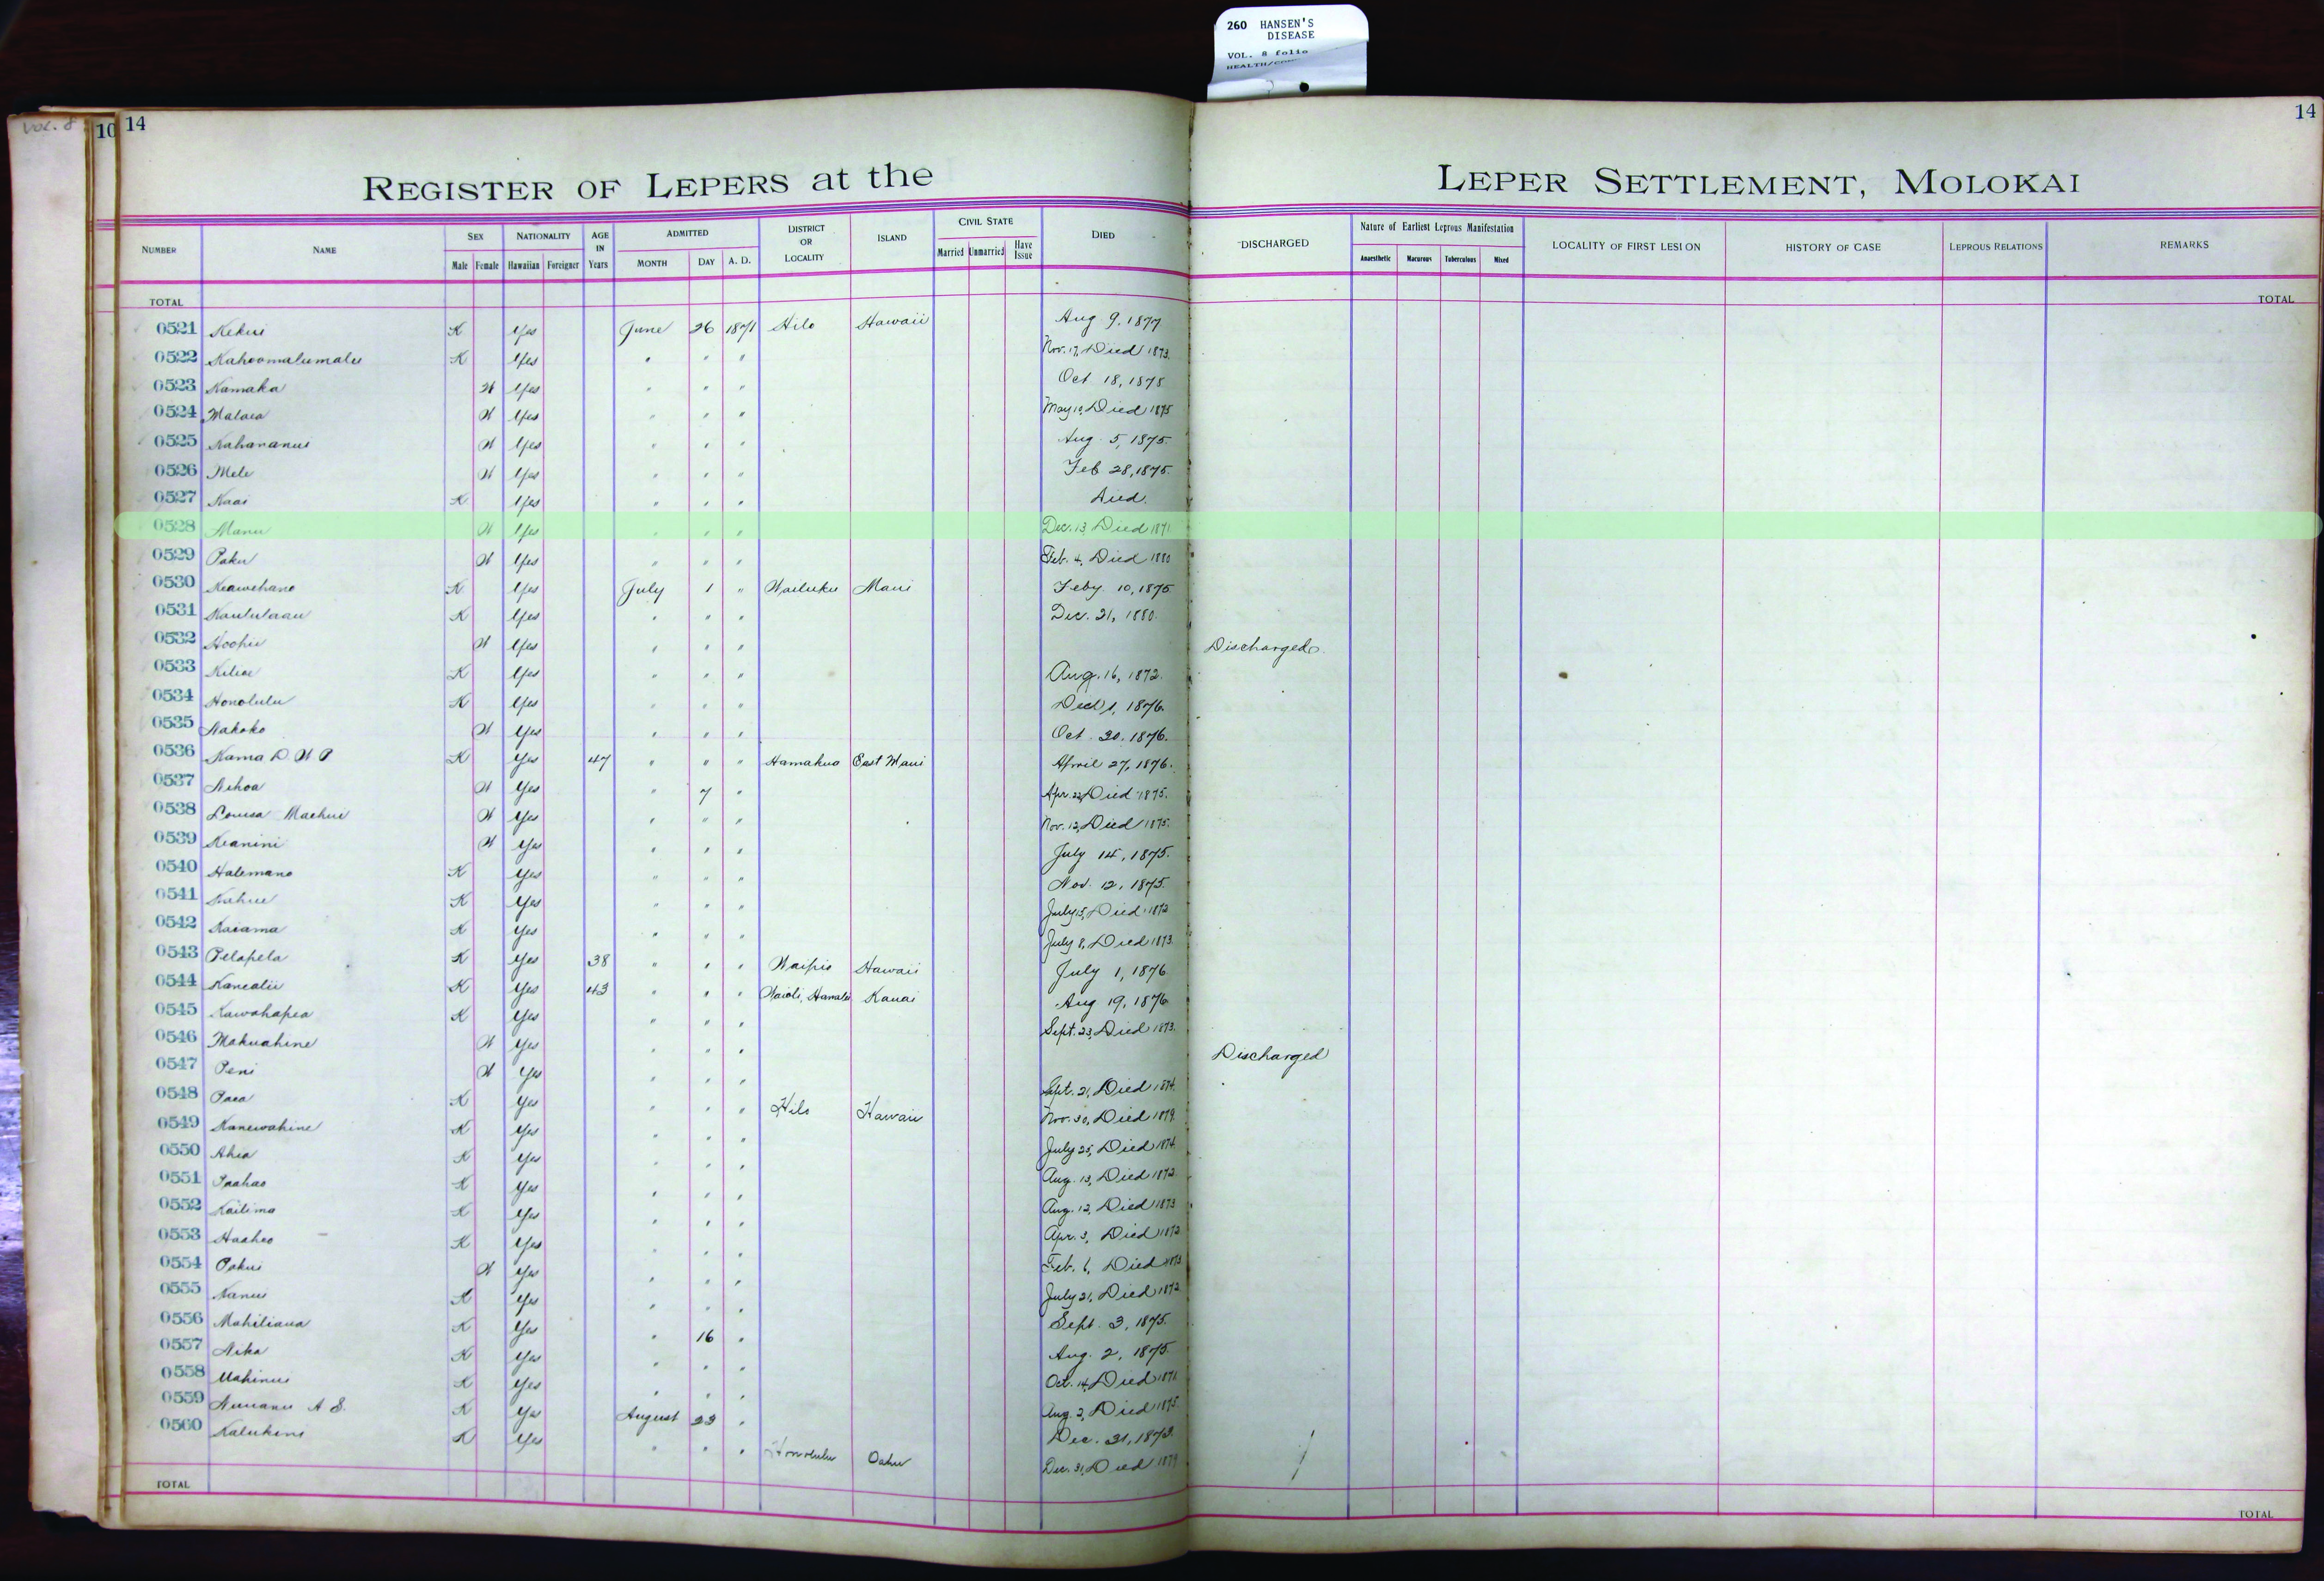 260 HANSEN'S
DISEASE
VOL. 8 folio
VOL. 8
10 14
14
REGISTER OF LEPERS at the LEPER SETTLEMENT, MOLOKAI
NUMBER NAME SEX Male Female NATIONALITY Hawaiian Foreigner AGE IN Years ADMITTED MONTH DAY A. D. DISTRICT OR LOCALITY ISLAND CIVIL STATE Married Unmarried Have Issue DIED DISCHARGED Nature of Earliest Leprous Manifestation Anaesthetic Macurous Tuberculous Mixed LOCALITY OF FIRST LESION HISTORY OF CASE LEPROUS RELATIONS REMARKS
TOTAL TOTAL
0521 Kekui K Yes June 26 1871 Hilo Hawaii Aug 9, 1877
0522 Kahoomalumalu K Yes " " " Nov. 17, Died 1873.
0523 Kamaka W Yes " " " Oct 18, 1875
0524 Malaea W Yes " " " May 10, Died 1875
0525 Kahananui W Yes " " " Aug. 5, 1875.
0526 Mele W Yes " " " Feb 28, 1875.
0527 Kaai K Yes " " " Died.
0528 Manu W Yes " " " Dec. 13, Died 1871
0529 Paku W Yes " " " Feb. 4, Died 1880
0530 Keawehano K Yes July 1 " Wailuku Maui Feby 10, 1875
0531 Kaululaau K Yes " " " Dec. 21, 1880.
0532 Hoohii W Yes " " " Discharged.
0533 Kiliae K Yes " " " Aug. 16, 1872.
0534 Honolulu K Yes " " " Died 1, 1876.
0535 Nakoko W Yes " " " Oct 20, 1876.
0536 Kama D. W P K Yes 47 " " " Hamakua East Maui April 27, 1876.
0537 Nihoa W Yes " 7 " Apr. 22, Died 1875.
0538 Louisa Maehui W Yes " " " Nov. 12, Died 1875.
0539 Keanini W Yes " " " July 14, 1875.
0540 Halemano K Yes " " " Nov. 12, 1875.
0541 Kahue K Yes " " " July 15, Died 1872
0542 Kaiama K Yes " " " July 8, Died 1873.
0543 Pelapela K Yes 38 " " " Waipio Hawaii July 1, 1876
0544 Kanealii K Yes 43 " " " Waioli, Hanalei Kauai Aug 19, 1876
0545 Kawahapea K Yes " " " Sept. 23, Died 1873.
0546 Makuahine W Yes " " " Discharged
0547 Peni W Yes " " " Sept. 21, Died 1874.
0548 Paea K Yes " " " Hilo Hawaii Nov. 30, Died 1879.
0549 Kanewahine K Yes " " " July 25, Died 1874.
0550 Ahia K Yes " " " Aug. 13, Died 1872.
0551 Paahao K Yes " " " Aug. 12, Died 1873
0552 Kailima K Yes " " " Apr. 3, Died 1872
0553 Haaheo K Yes " " " Feb. 6, Died 1873
0554 Pakui W Yes " " " July 21, Died 1872
0555 Nanui K Yes " " " Sept. 3, 1875.
0556 Mahiliana K Yes " 16 " Aug. 2, 1875.
0557 Nika K Yes " " " Oct. 14, Died 1871.
0558 Mahinui K Yes " " " Aug. 2, Died 1875.
0559 Nuuanu A S. K Yes August 23 " Dec. 31, 1873.
0560 Kalukini K Yes " " " Honolulu Oahu Dec. 31, Died 1879
TOTAL TOTAL